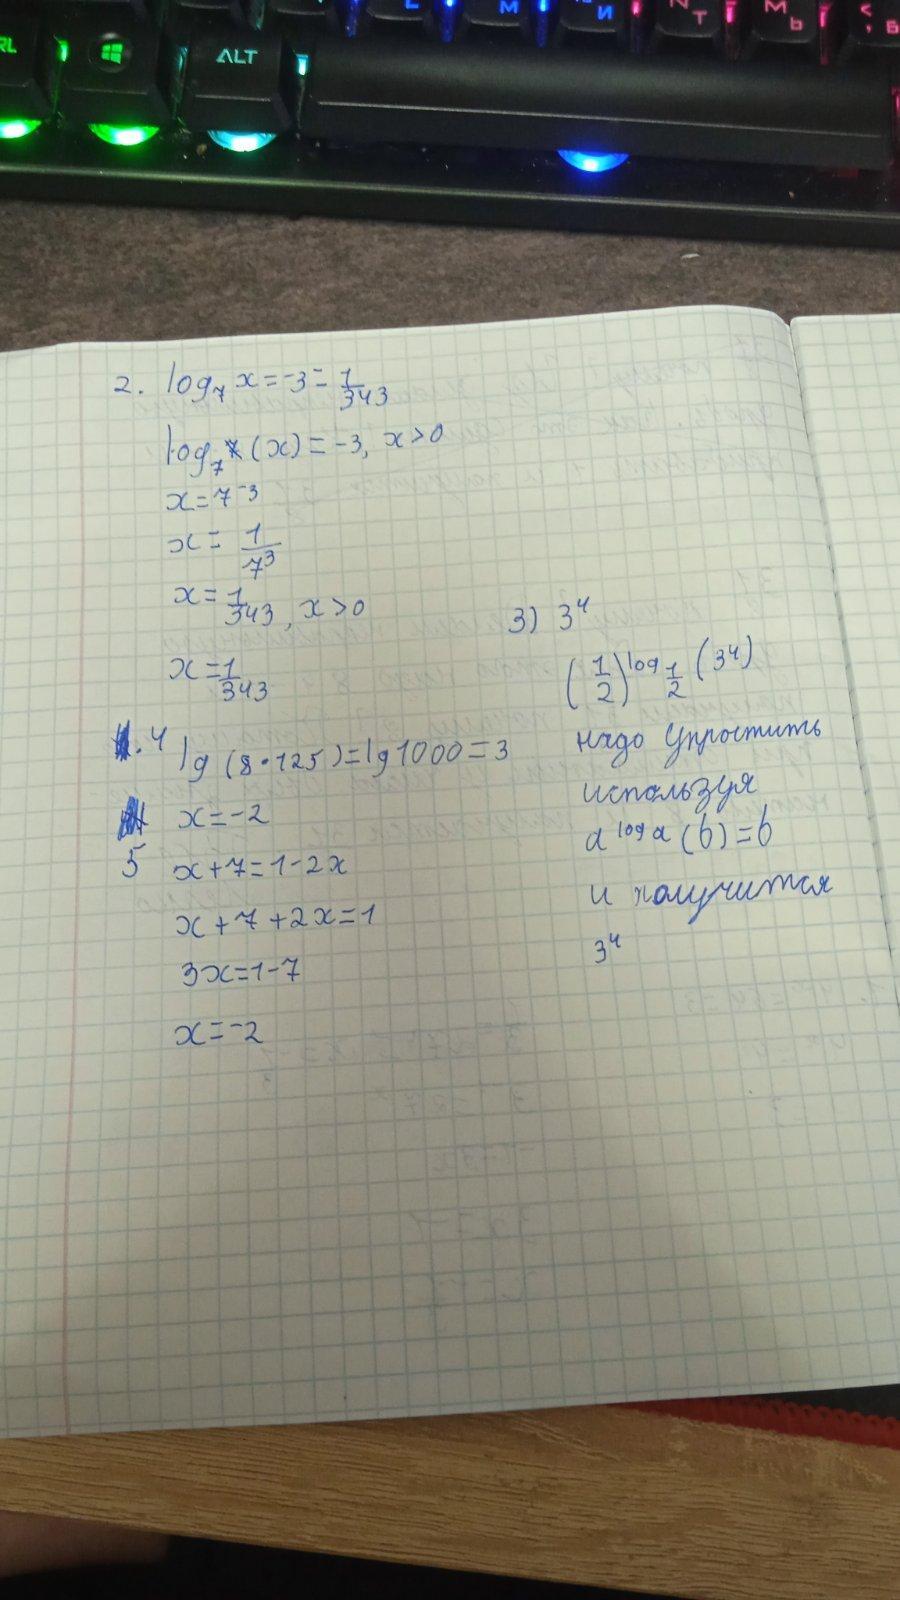 ALT
2. log₇ x = -3 = 1/343
log₇ (x) = -3, x > 0
x = 7⁻³
x = 1/7³
x = 1/343, x > 0
x = 1/343
3) 3⁴
(1/2)^log_1/2 (3⁴)
надо упростить
используя
a^log a (b) = b
и получится
3⁴
4 lg (8·125) = lg 1000 = 3
x = -2
5 x + 7 = 1 - 2x
x + 7 + 2x = 1
3x = 1 - 7
x = -2